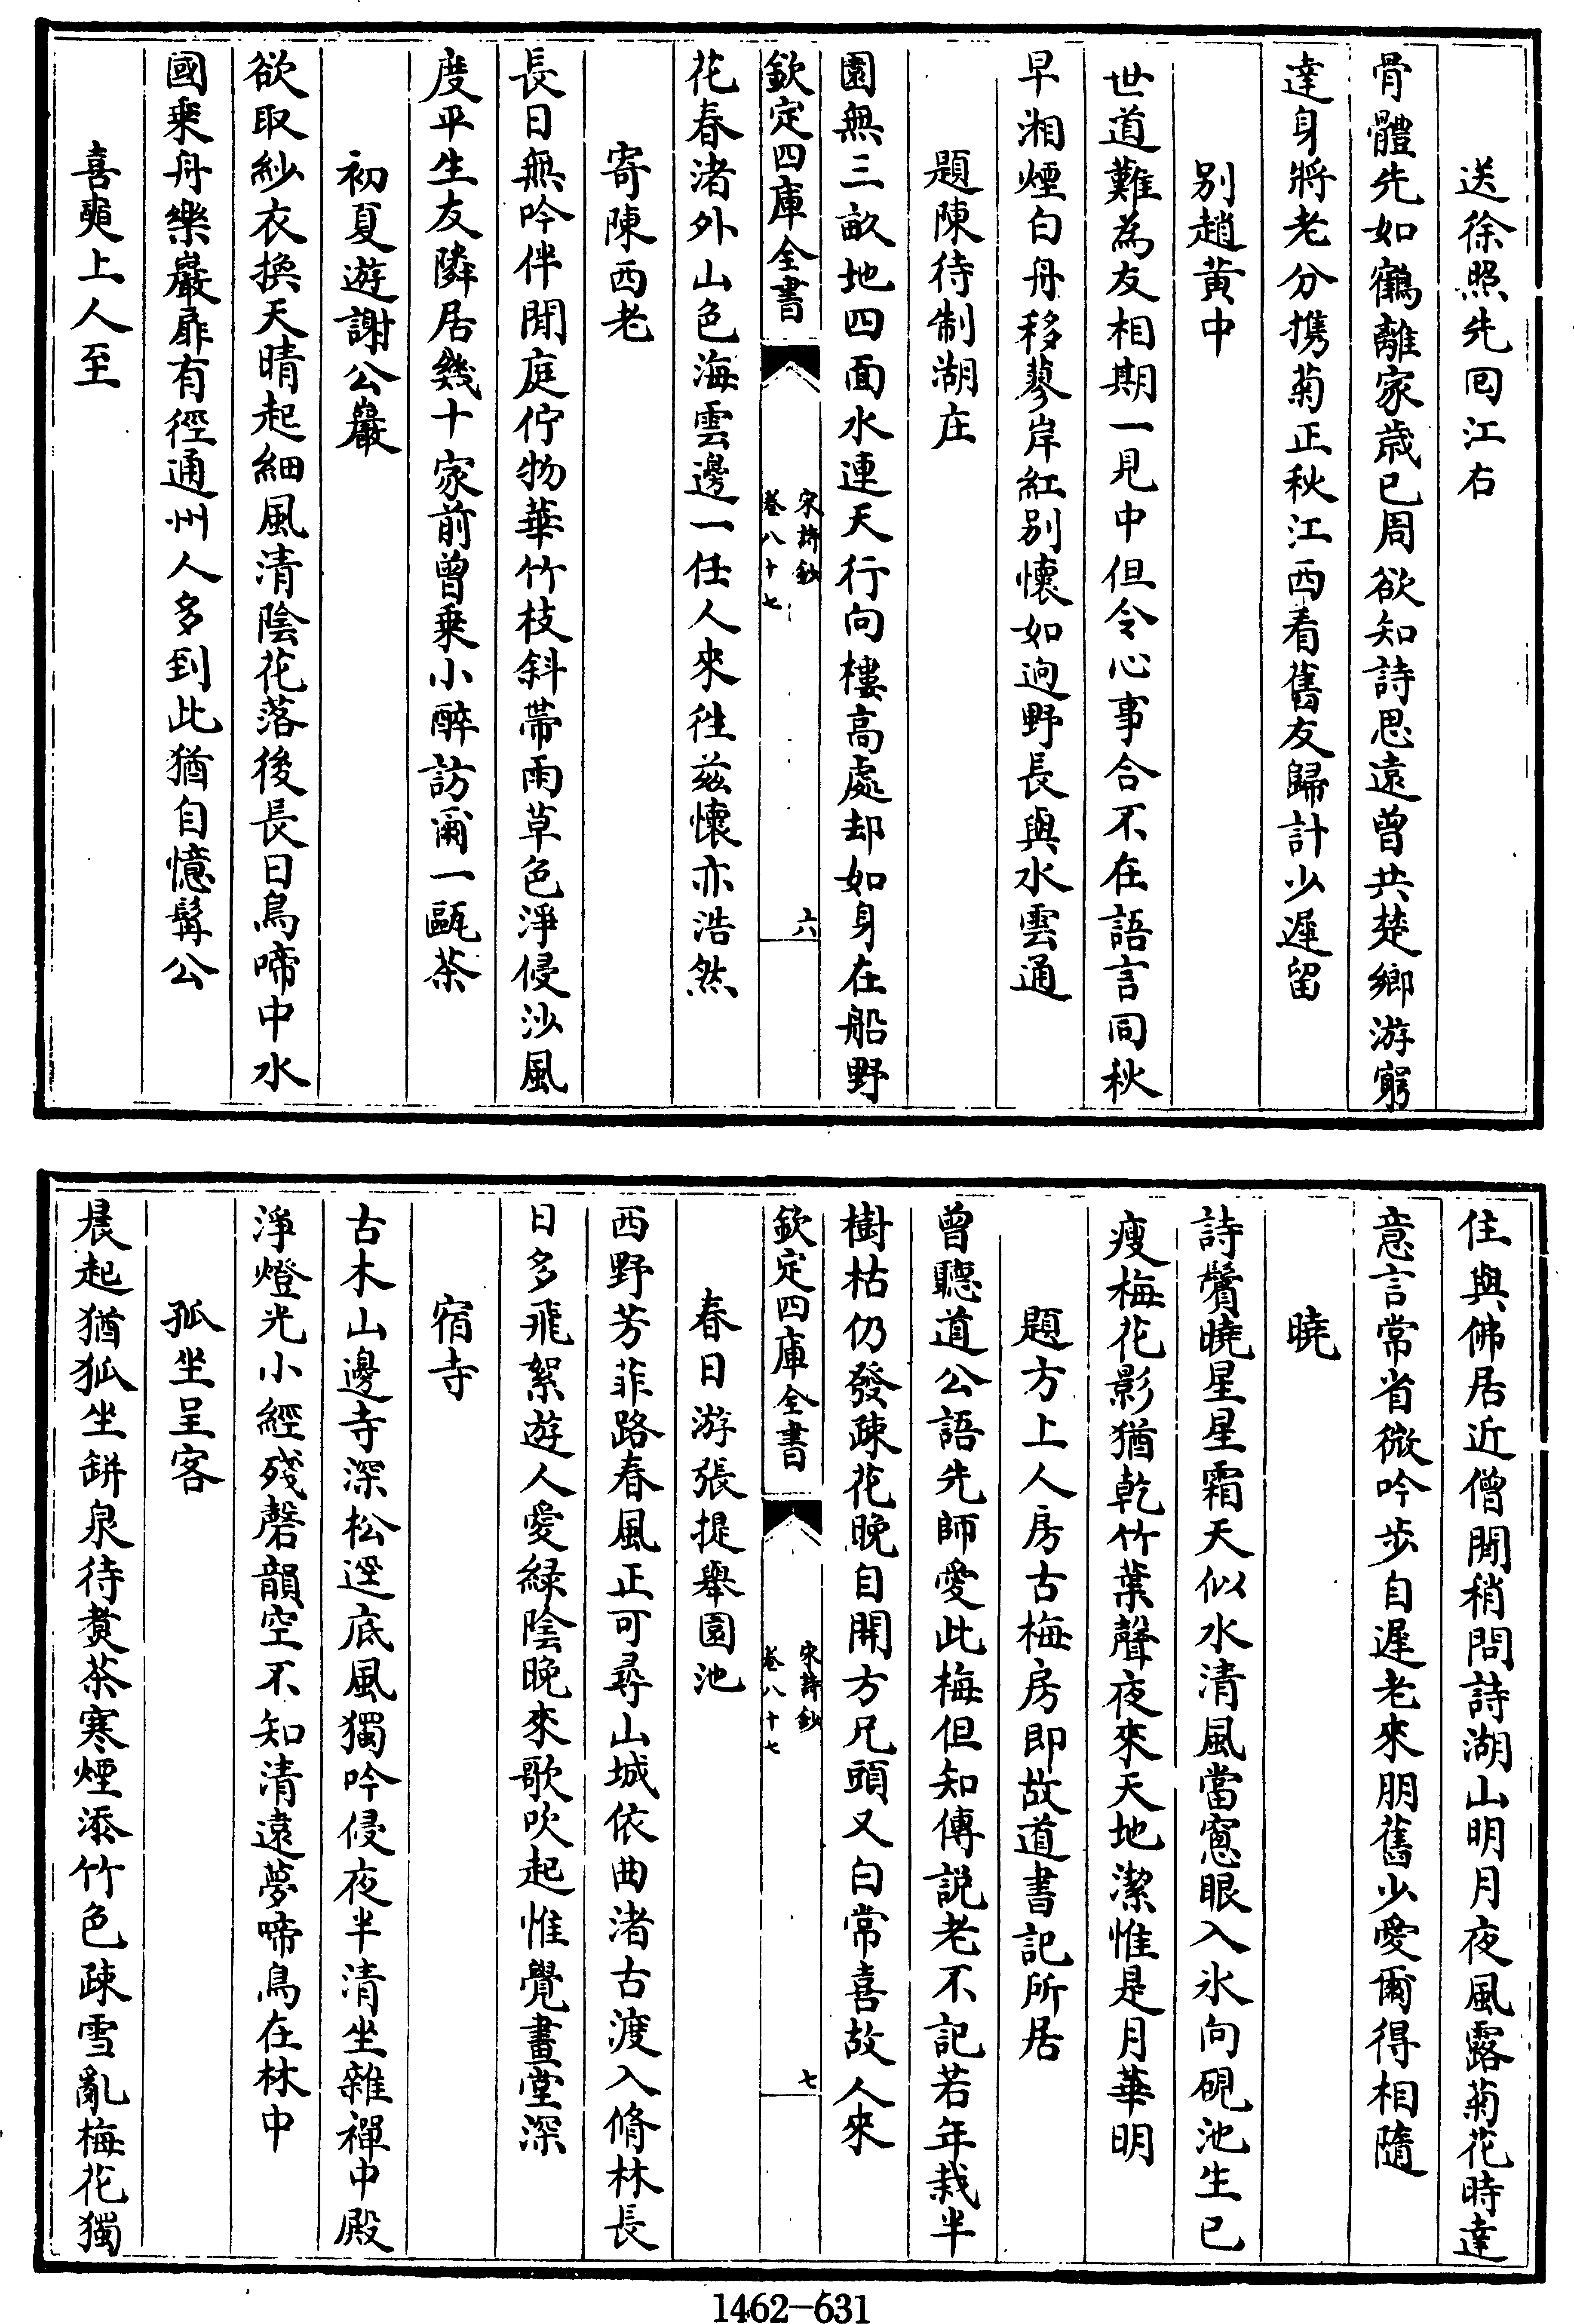 送徐照先囘江右
骨體先如鶴離家歳已周欲知詩思遠曾共楚鄉游窮
達身將老分攜菊正秋江西看舊友歸計少遲留
别趙黄中
世道難為友相期一見中但令心事合不在語言同秋
早湘煙白舟移蓼岸紅别懷如逈野長與水雲通
題陳待制湖庄
園無三畝地四面水連天行向樓高處却如身在船野
欽定四庫全書
宋詩鈔
卷八十七
六
花春渚外山色海雲邊一任人來徃兹懷亦浩然
寄陳西老
長日無吟伴閒庭佇物華竹枝斜帶雨草色淨侵沙風
度平生友隣居幾十家前曾乗小醉訪爾一甌茶
初夏遊謝公巖
欲取紗衣換天晴起細風清陰花落後長日鳥啼中水
國乗舟樂巖扉有徑通州人多到此猶自憶髯公
喜奭上人至
住與佛居近僧閒稍問詩湖山明月夜風露菊花時達
意言常省微吟步自遲老來朋舊少愛爾得相隨
曉
詩鬢曉星星霜天似水清風當窻眼入氷向硯池生已
瘦梅花影猶乾竹葉聲夜來天地潔惟是月華明
題方上人房古梅房即故道書記所居
曾聽道公語先師愛此梅但知傳説老不記若年栽半
樹枯仍發疎花晚自開方兄頭又白常喜故人來
欽定四庫全書
宋詩鈔
卷八十七
七
春日游張提舉園池
西野芳菲路春風正可尋山城依曲渚古渡入脩林長
日多飛絮遊人愛緑陰晚來歌吹起惟覺畫堂深
宿寺
古木山邊寺深松逕底風獨吟侵夜半清坐雜禪中殿
淨燈光小經殘磬韻空不知清遠夢啼鳥在林中
孤坐呈客
晨起猶孤坐缾泉待煑茶寒煙添竹色疎雪亂梅花獨
1462-631